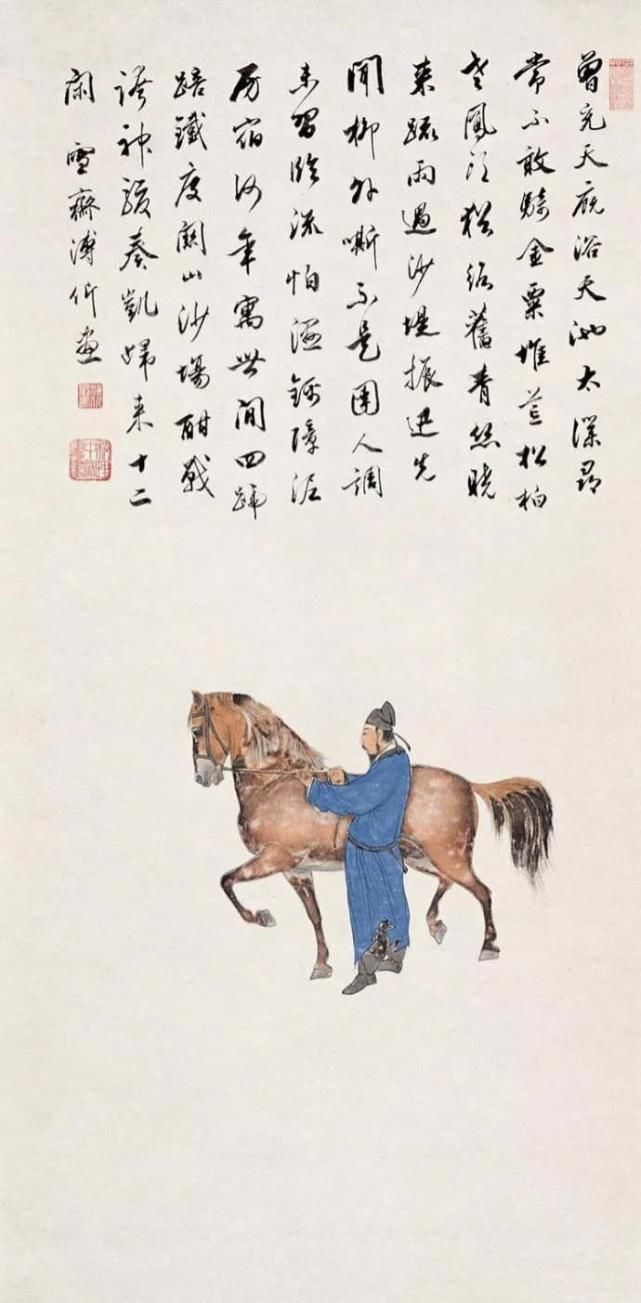 曾充天廄浴天池太僕尋
常不敢騎金粟堆荒松柏
老鳳頭猶絡舊青絲曉
來疏雨過沙堤振迅先
聞柳外嘶不是圉人調
未習臨流怕濕錦障泥
房宿何年寓世間四蹄
踣鐵度關山沙場酣戰
誇神駿奏凱歸來十二
閑 雪齋溥伒畫